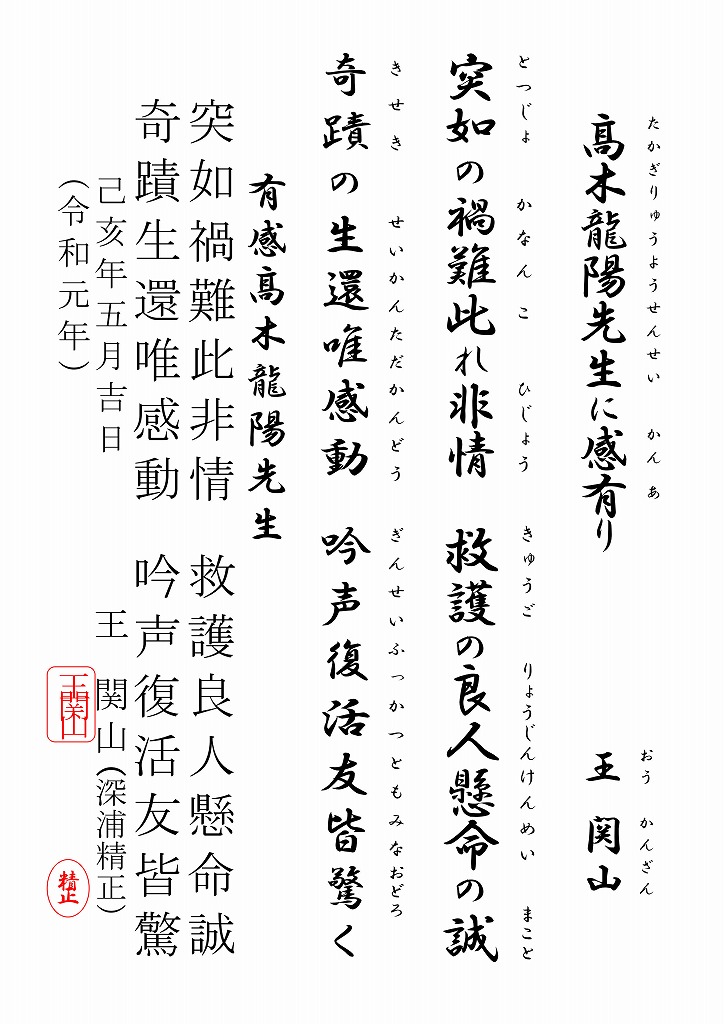 たかぎりゅうようせんせい かん あ
髙木龍陽先生に感有り
おう かんざん
王 関山
とつじょ かなん こ ひじょう きゅうご りょうじんけんめい まこと
突如の禍難此れ非情 救護の良人懸命の誠
きせき せいかんただかんどう ぎんせいふっかつともみなおどろ
奇蹟の生還唯感動 吟声復活友皆驚く
有感髙木龍陽先生
突如禍難此非情 救護良人懸命誠
奇蹟生還唯感動 吟声復活友皆驚
己亥年五月吉日 王 関山(深浦精正)
(令和元年)
王関山
精正